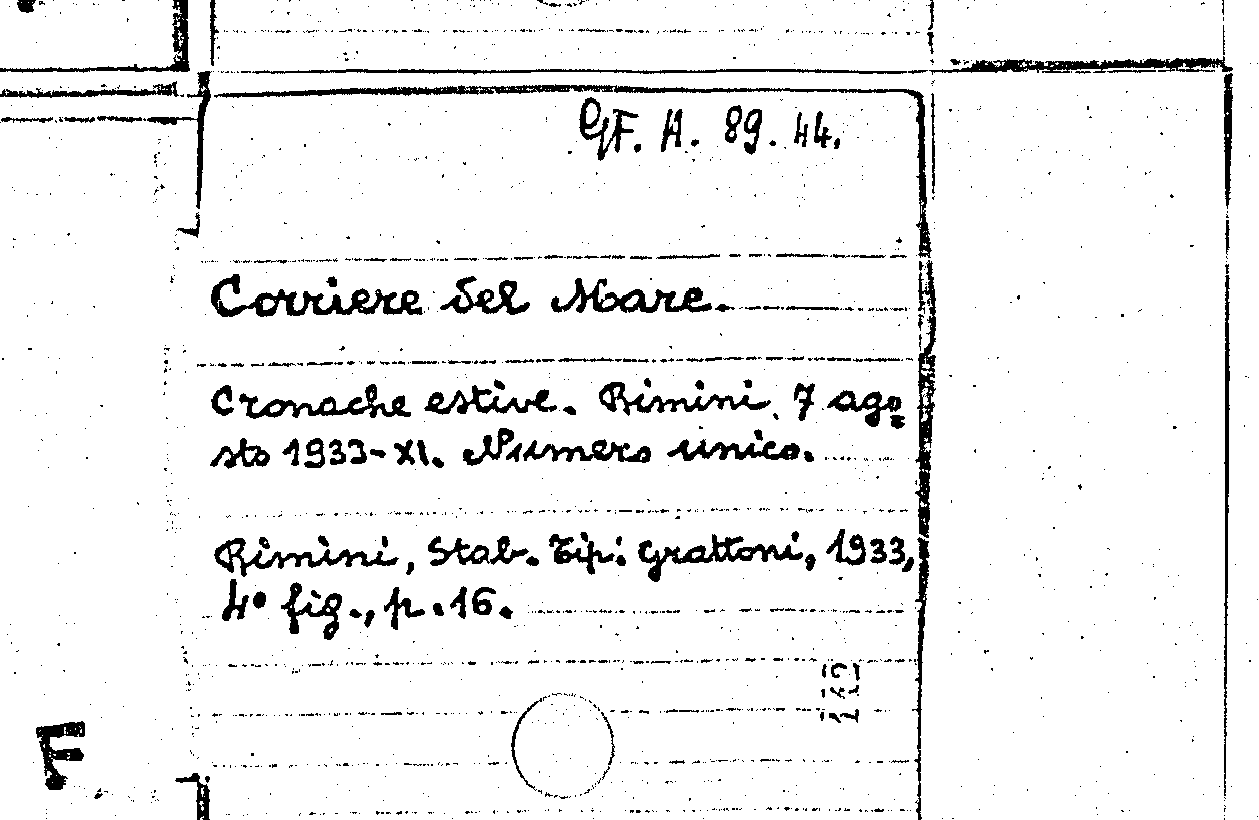 GF. A. 89. 44.
Corriere del Mare.
Cronache estive. Rimini, 7 ago
sto 1933-XI. Numero unico.
Rimini, Stab. Tip. Grattoni, 1933,
4° fig., p. 16.
F